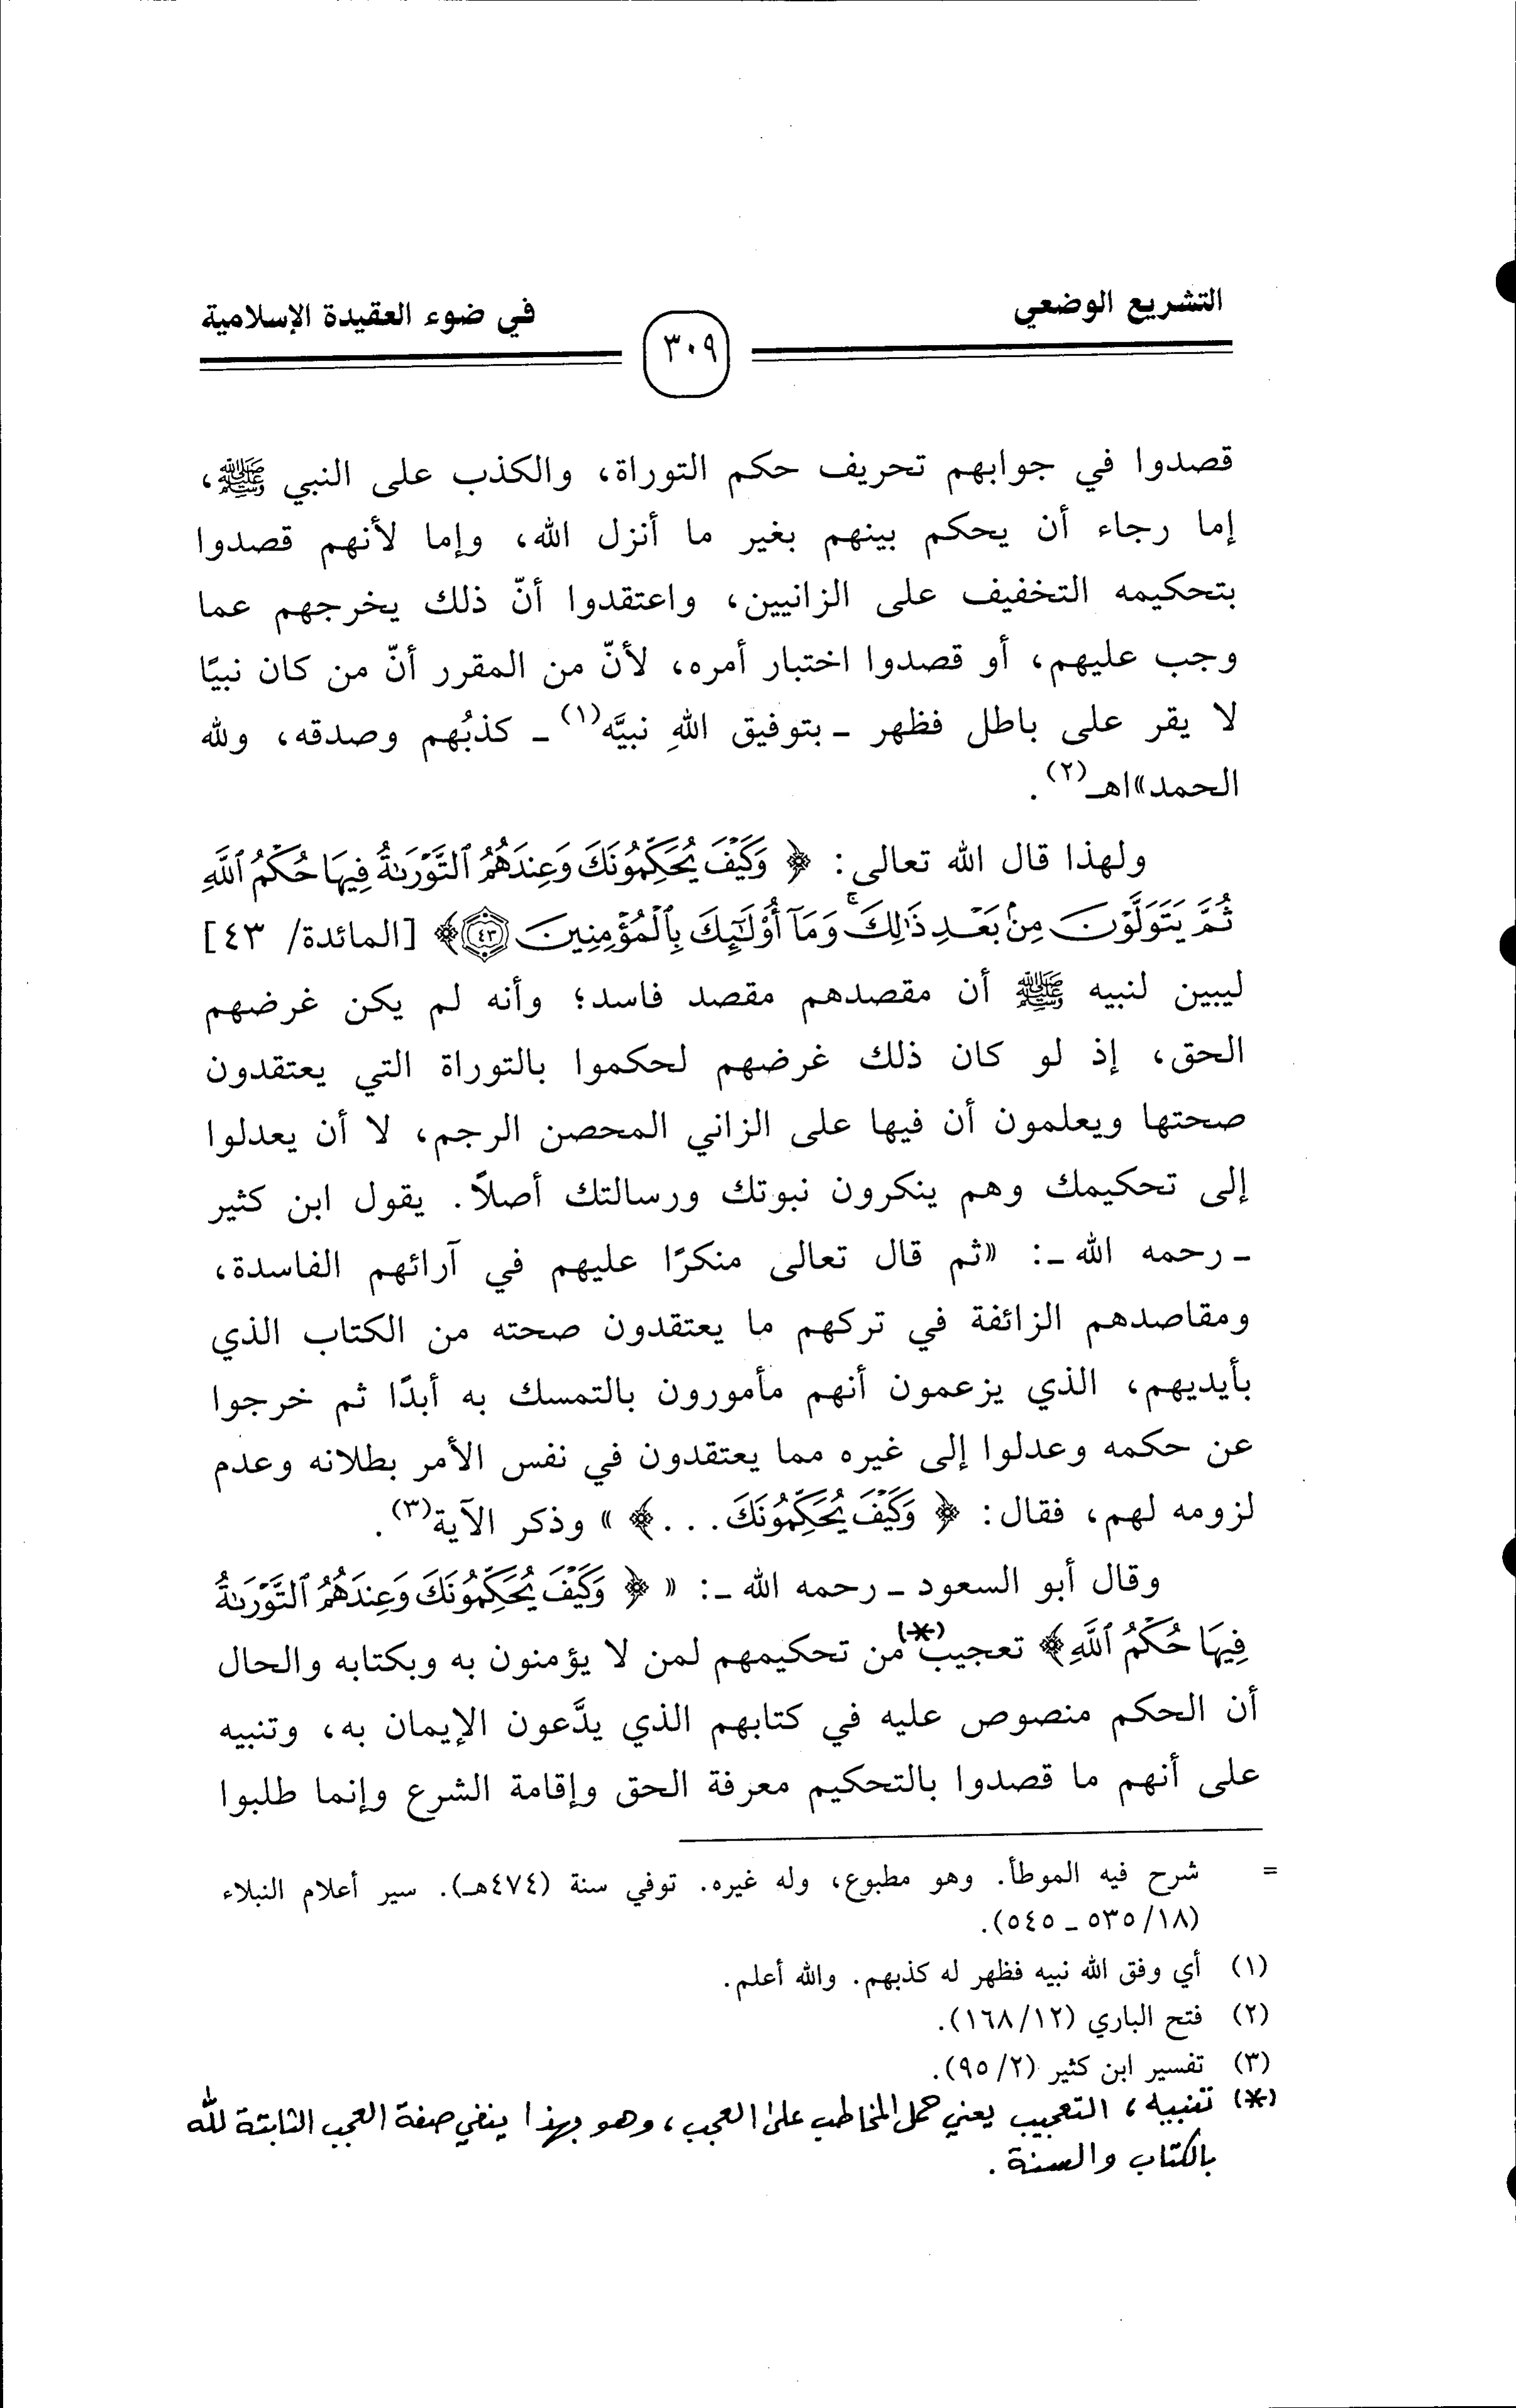 التشريع الوضعي
٣٠٩
في ضوء العقيدة الإسلامية
قصدوا في جوابهم تحريف حكم التوراة، والكذب على النبي ﷺ،
إما رجاء أن يحكم بينهم بغير ما أنزل الله، وإما لأنهم قصدوا
بتحكيمه التخفيف على الزانيين، واعتقدوا أنّ ذلك يخرجهم عما
وجب عليهم، أو قصدوا اختبار أمره، لأنّ من المقرر أنّ من كان نبيًا
لا يقر على باطل فظهر ـ بتوفيق اللهِ نبيَّه(١) ـ كذبُهم وصدقه، ولله
الحمد»اهـ(٢).
ولهذا قال الله تعالى: ﴿ وَكَيْفَ يُحَكِّمُونَكَ وَعِندَهُمُ ٱلتَّوْرَىٰةُ فِيهَا حُكْمُ ٱللَّهِ
ثُمَّ يَتَوَلَّوْنَ مِنۢ بَعْدِ ذَٰلِكَ ۚ وَمَآ أُوْلَٰٓئِكَ بِٱلْمُؤْمِنِينَ ٤٣﴾ [المائدة/ ٤٣]
ليبين لنبيه ﷺ أن مقصدهم مقصد فاسد؛ وأنه لم يكن غرضهم
الحق، إذ لو كان ذلك غرضهم لحكموا بالتوراة التي يعتقدون
صحتها ويعلمون أن فيها على الزاني المحصن الرجم، لا أن يعدلوا
إلى تحكيمك وهم ينكرون نبوتك ورسالتك أصلاً. يقول ابن كثير
ـ رحمه الله ـ: «ثم قال تعالى منكرًا عليهم في آرائهم الفاسدة،
ومقاصدهم الزائفة في تركهم ما يعتقدون صحته من الكتاب الذي
بأيديهم، الذي يزعمون أنهم مأمورون بالتمسك به أبدًا ثم خرجوا
عن حكمه وعدلوا إلى غيره مما يعتقدون في نفس الأمر بطلانه وعدم
لزومه لهم، فقال: ﴿ وَكَيْفَ يُحَكِّمُونَكَ. . .﴾ » وذكر الآية(٣).
وقال أبو السعود ـ رحمه الله ـ: « ﴿ وَكَيْفَ يُحَكِّمُونَكَ وَعِندَهُمُ ٱلتَّوْرَىٰةُ
فِيهَا حُكْمُ ٱللَّهِ﴾ تعجيب(*) من تحكيمهم لمن لا يؤمنون به وبكتابه والحال
أن الحكم منصوص عليه في كتابهم الذي يدَّعون الإيمان به، وتنبيه
على أنهم ما قصدوا بالتحكيم معرفة الحق وإقامة الشرع وإنما طلبوا
= شرح فيه الموطأ. وهو مطبوع، وله غيره. توفي سنة (٤٧٤هـ). سير أعلام النبلاء
(١٨/ ٥٣٥ ـ ٥٤٥).
(١) أي وفق الله نبيه فظهر له كذبهم. والله أعلم.
(٢) فتح الباري (١٢/ ١٦٨).
(٣) تفسير ابن كثير (٢/ ٩٥).
(*) تنبيه، التعجيب يعني حمل المخاطب على العجب، وهو بهذا ينفي صفة العجب الثابتة لله
بالكتاب والسنة.